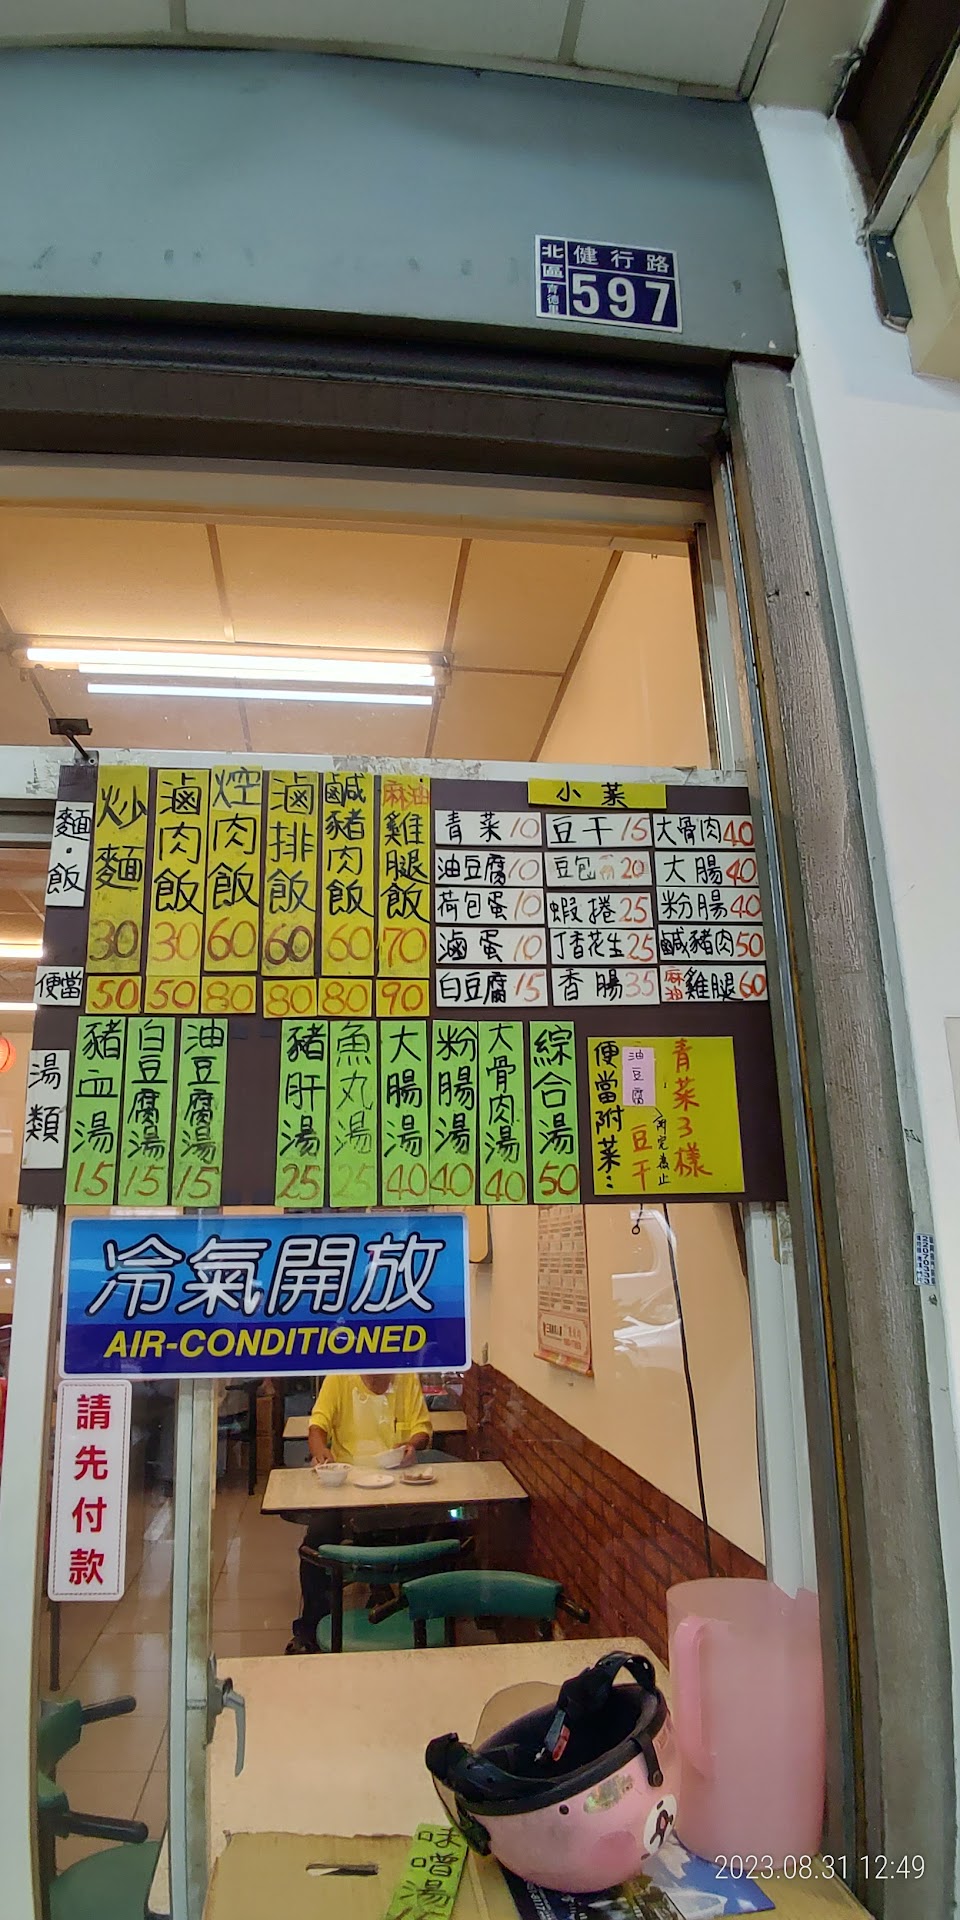 北區
育德里
健行路
597
麵・飯
炒麵 30
滷肉飯 30
焢肉飯 60
滷排飯 60
鹹豬肉飯 60
麻油雞腿飯 70
便當 50 50 80 80 80 90
小菜
青菜10 豆干15 大骨肉40
油豆腐10 豆包20 大腸40
荷包蛋10 蝦捲25 粉腸40
滷蛋10 丁香花生25 鹹豬肉50
白豆腐15 香腸35 麻油雞腿60
湯類
豬血湯 15
白豆腐湯 15
油豆腐湯 15
豬肝湯 25
魚丸湯 25
大腸湯 40
粉腸湯 40
大骨肉湯 40
綜合湯 50
青菜3樣
油豆腐 豆干
便當附菜：
冷氣開放
AIR-CONDITIONED
請先付款
味噌湯
2023.08.31 12:49